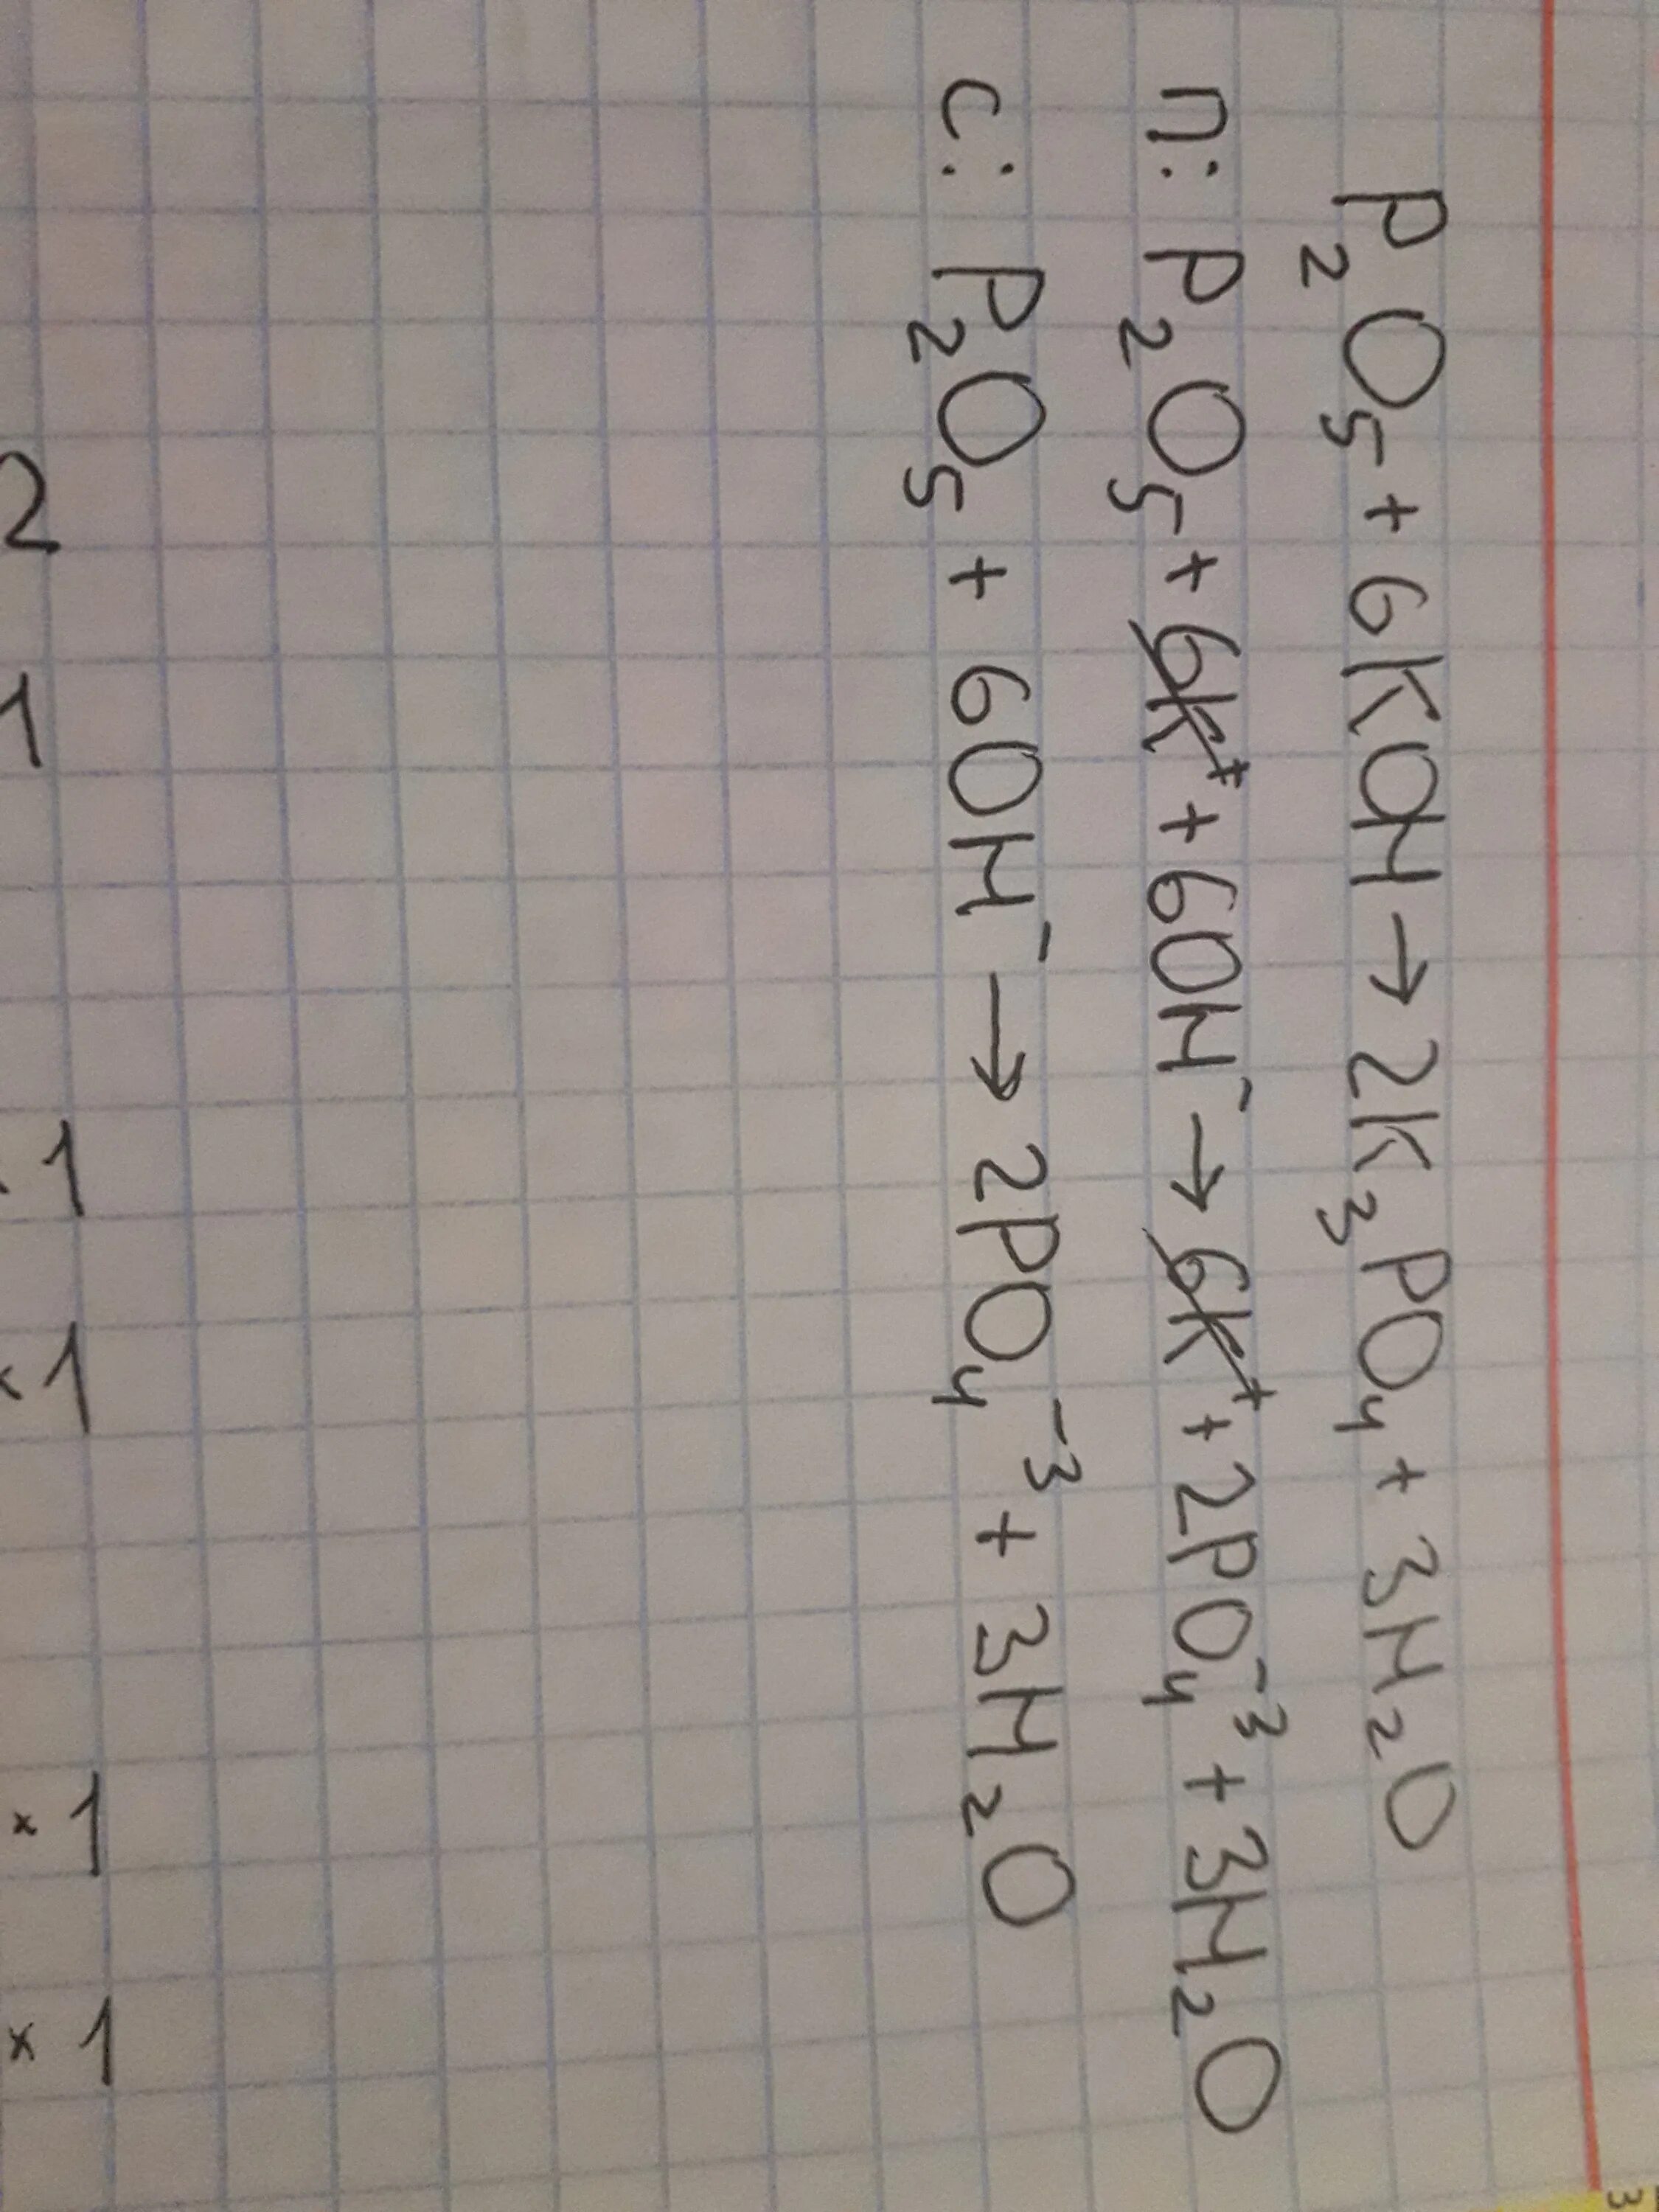 P₂O₅ + 6KOH → 2K₃PO₄ + 3H₂O
П: P₂O₅ + 6K⁺ + 6OH⁻ → 6K⁺ + 2PO₄⁻³ + 3H₂O
С: P₂O₅ + 6OH⁻ → 2PO₄⁻³ + 3H₂O
2 1 1 ×1 ×1 ×1